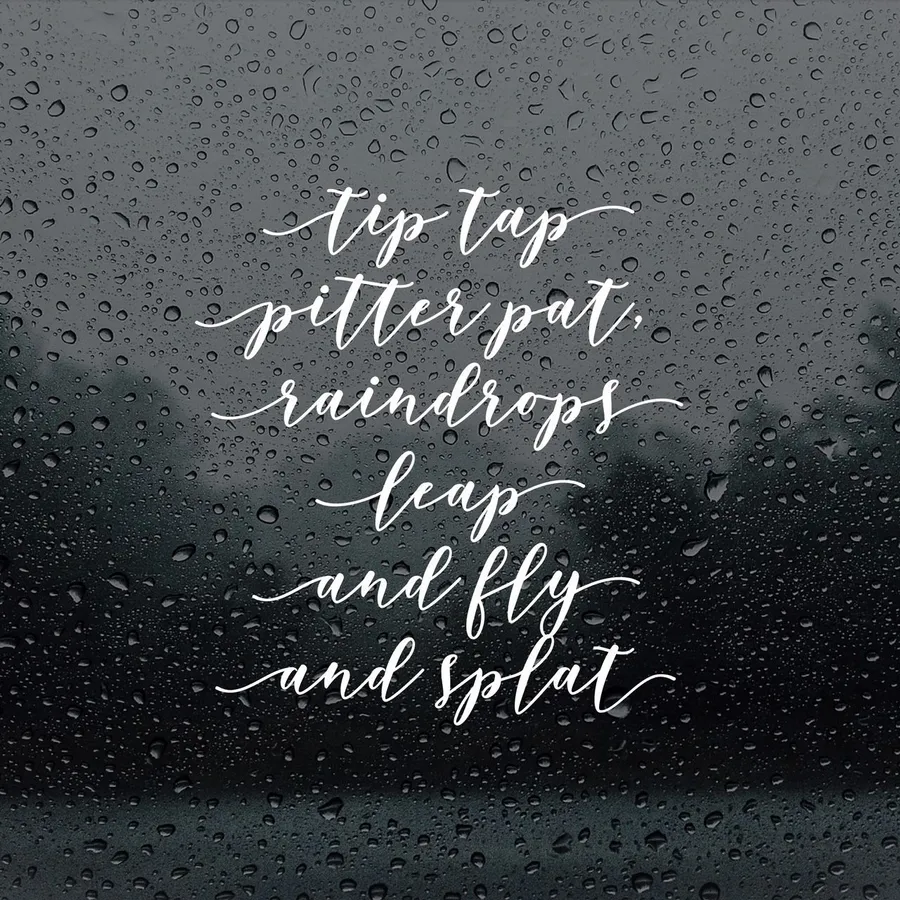 tip tap
pitter pat,
raindrops
leap
and fly
and splat